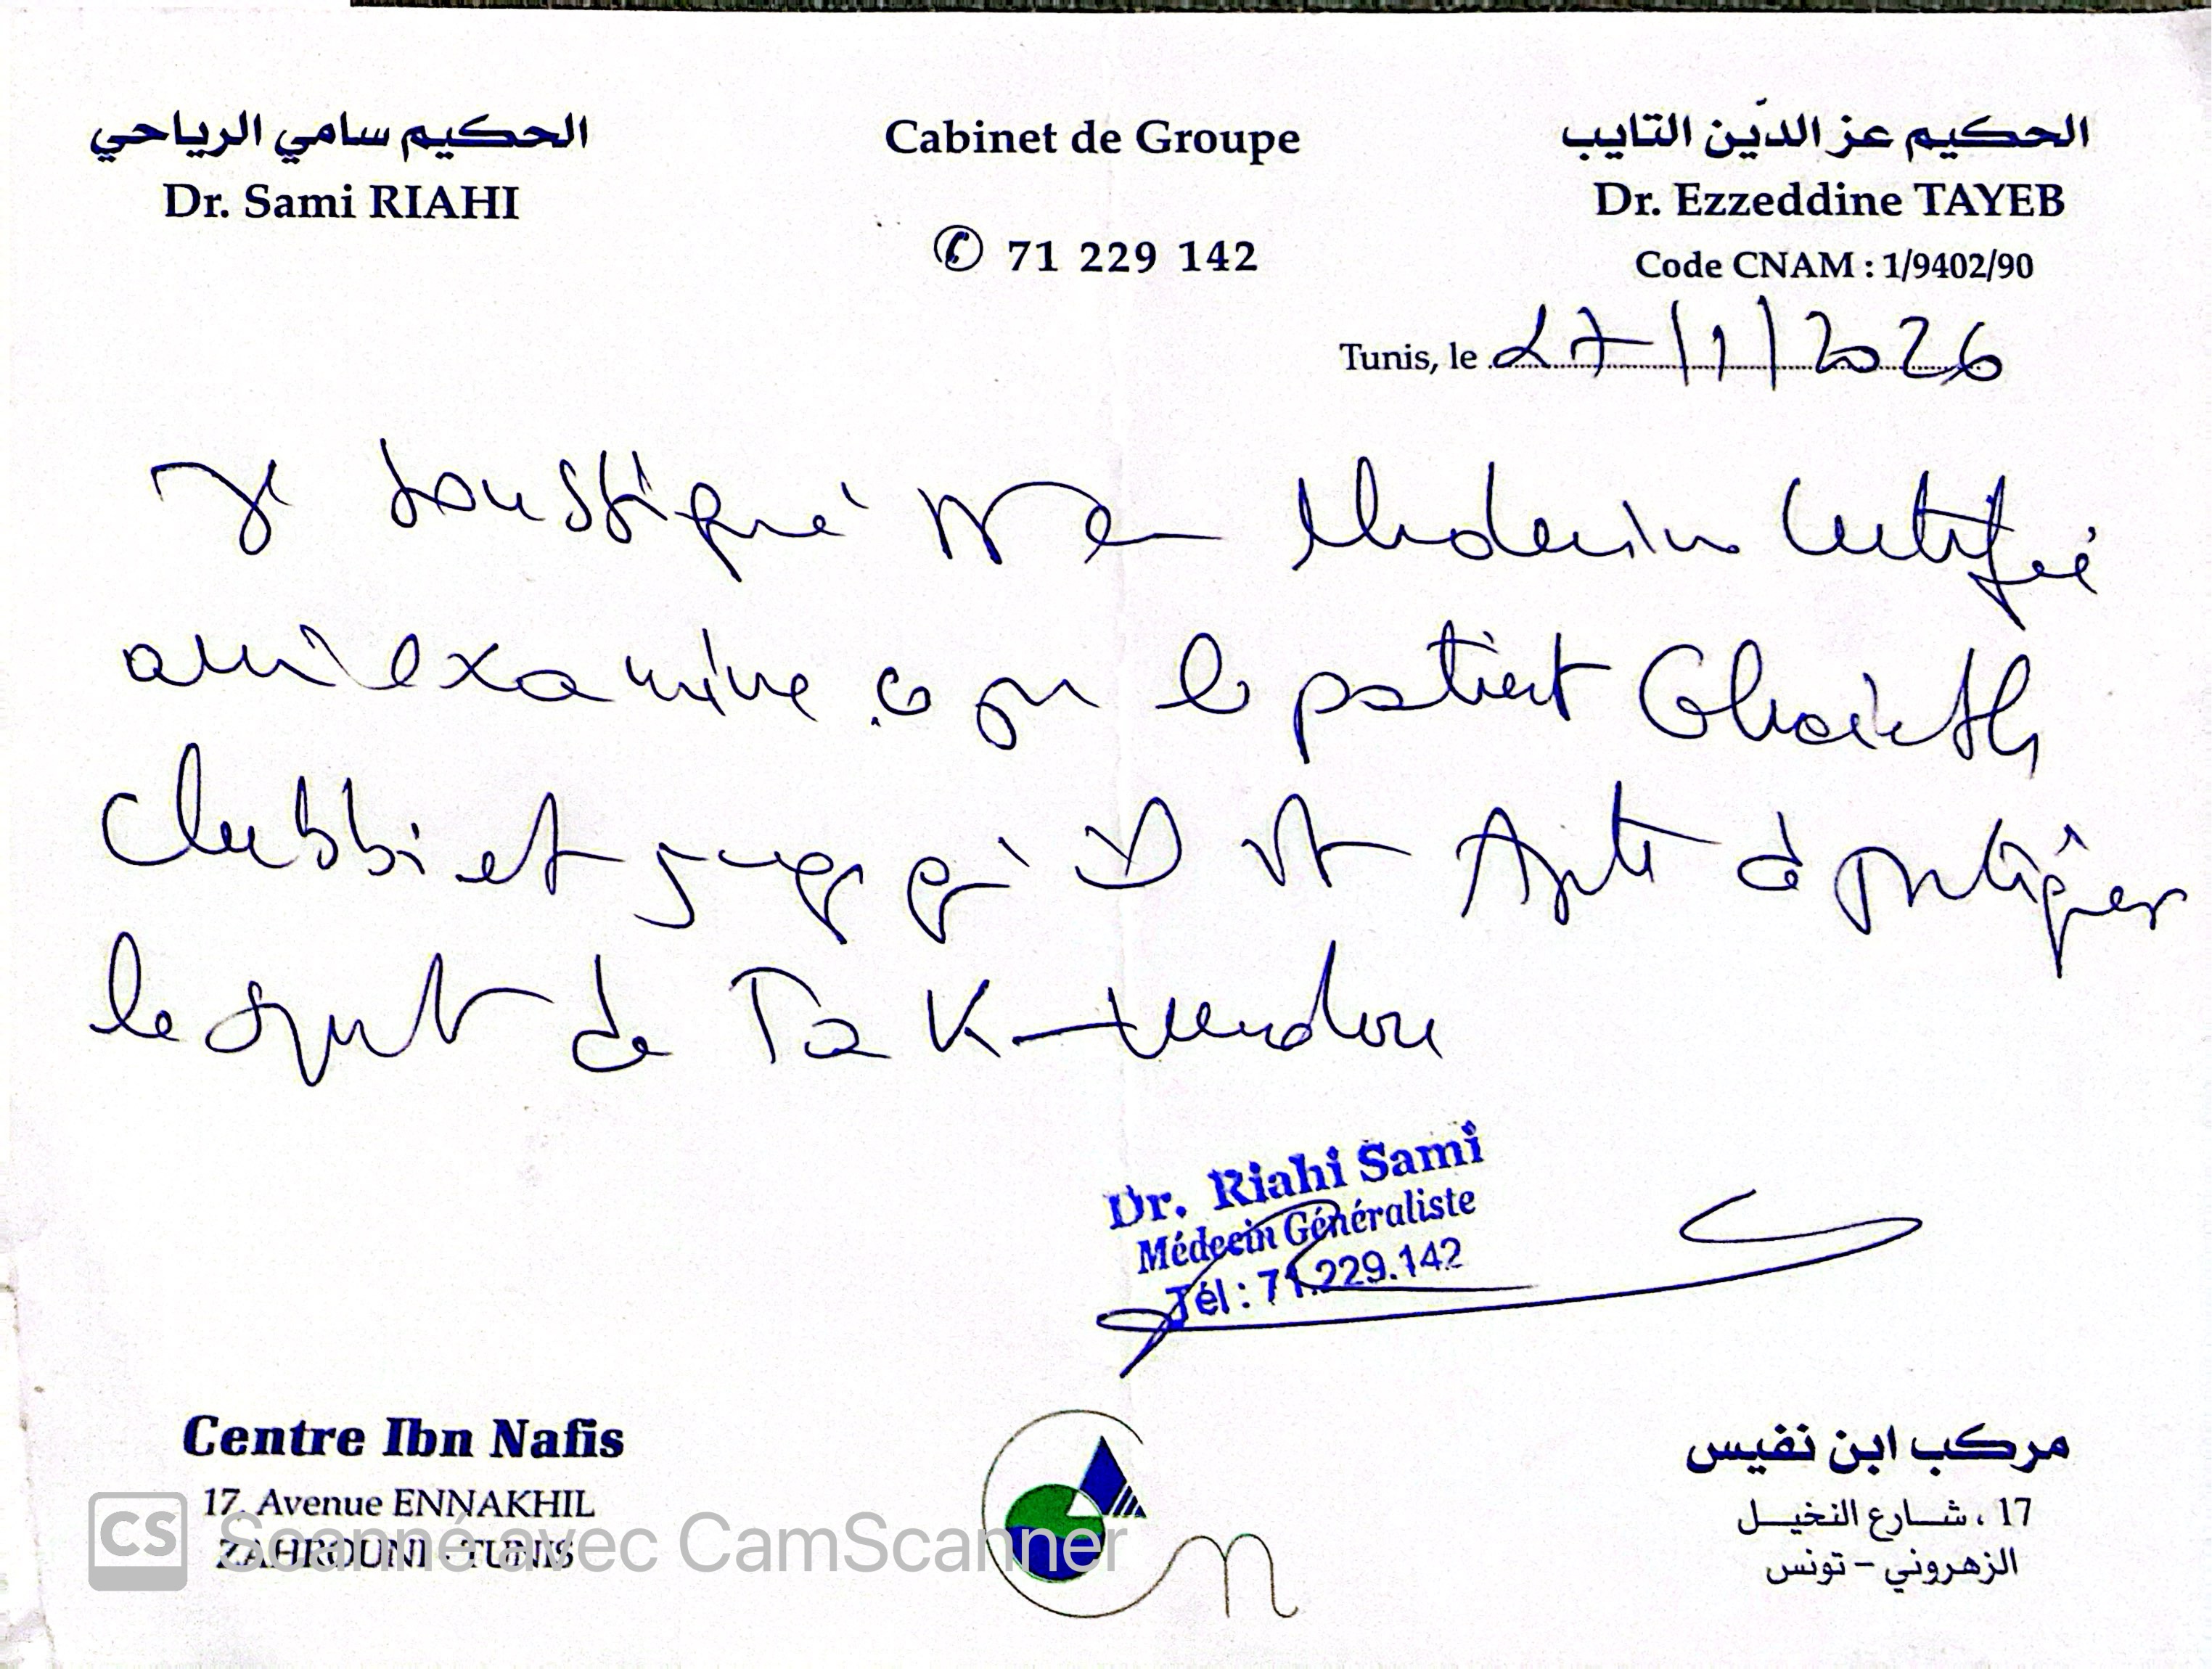 الحكيم سامي الرياحي
Dr. Sami RIAHI
Cabinet de Groupe
✆ 71 229 142
الحكيم عز الدّين التايب
Dr. Ezzeddine TAYEB
Code CNAM : 1/9402/90
Tunis, le 27/1/2026
Je soussigné Médecin Certifié
avoir examiné ce jour le patient Ghaieth
Chebbi et juge qu'il est Apte à pratiquer
le sport de Taekwendou
Dr. Riahi Sami
Médecin Généraliste
Tél : 71.229.142
Centre Ibn Nafis
17, Avenue ENNAKHIL
ZAHROUNI - TUNIS
مركب ابن نفيس
17 ، شارع النخيل
الزهروني - تونس
CS Scanné avec CamScanner